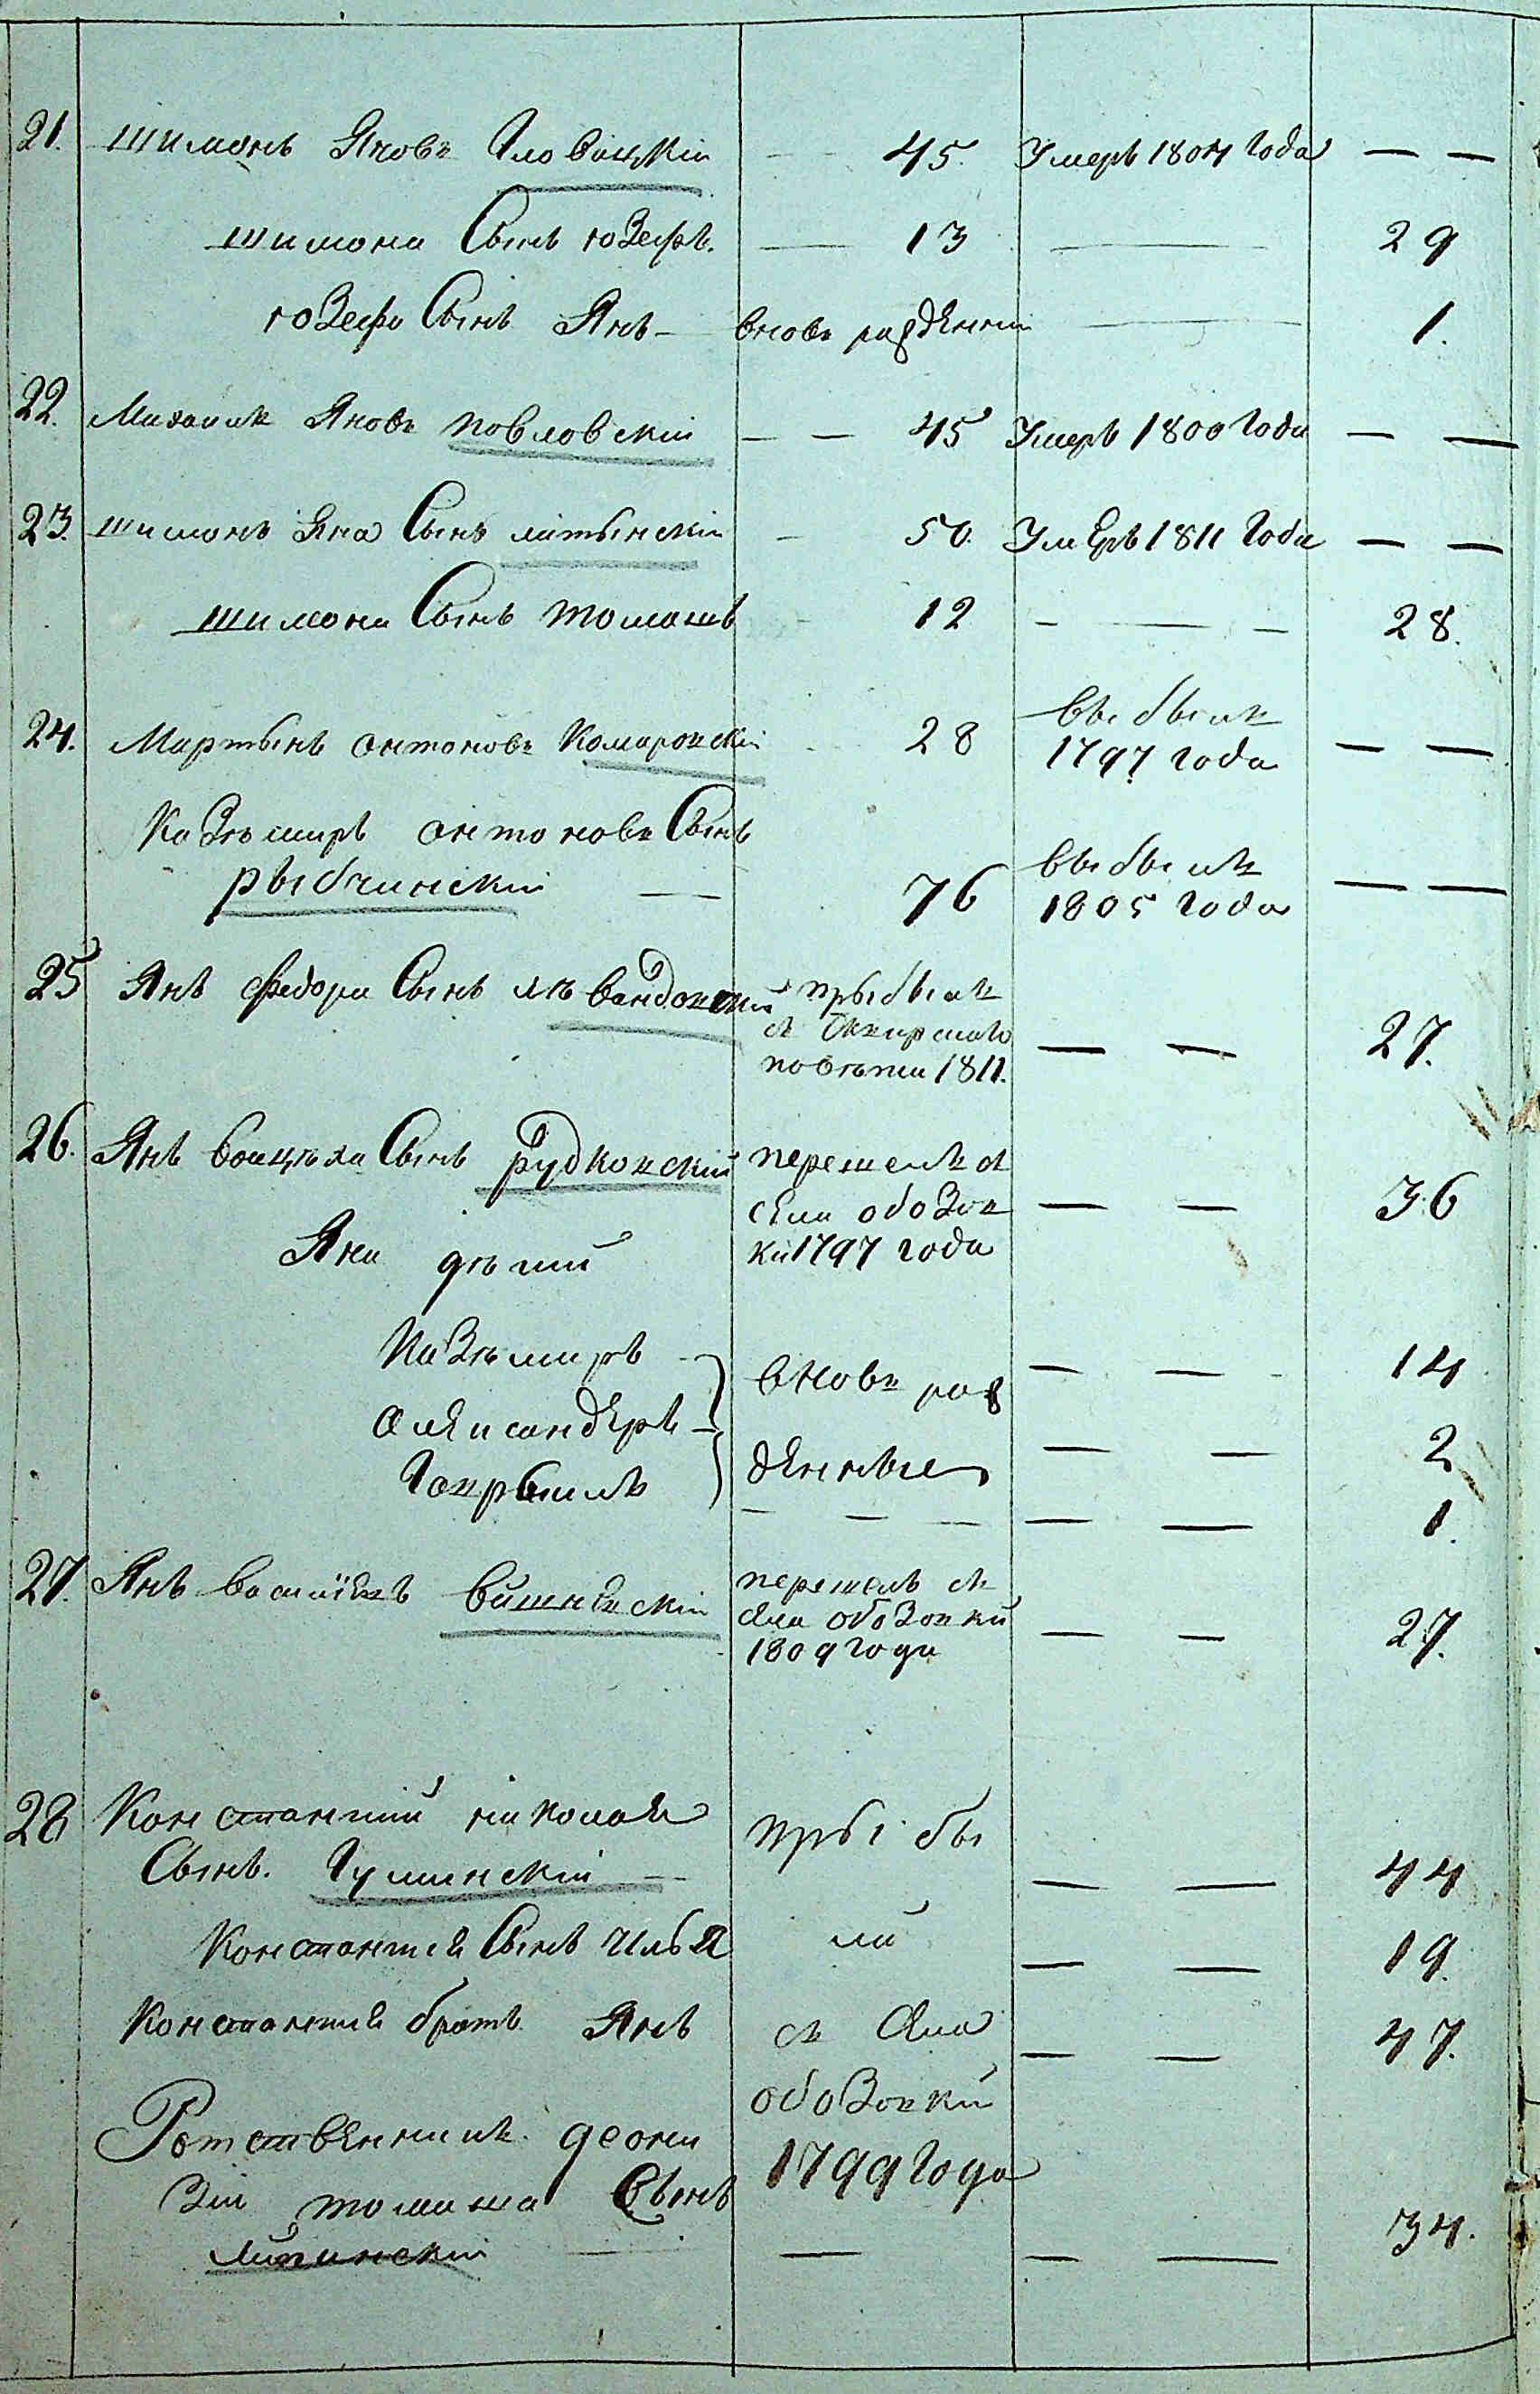 21. Шимонъ Яновъ Гловацкій — 45. Умеръ 1804 Года — —
Шимона Сынъ юзефъ. — 13 — 29
юзефа Сынъ Янъ — вновь раждEнній — 1.
22. Михаилъ Яновъ Повловскій — — 45 Умеръ 1800 Года — —
23. Шимонъ Яна Сынъ латынскій — 50. Умеръ 1811 Года — —
Шимона Сынъ томашъ 12 — — — 28.
24. Мартынъ антоновъ Комаровскій 28 выбылъ
1797 года — —
Казѣмиръ антоновъ Сынъ
рыбчинскій — 76 выбылъ
1805 Года — —
25 Янъ федора Сынъ лѣвандовскій прыбылъ
съ Сквирскаго
повѣта 1811. — — 27.
26. Янъ воицѣха Сынъ рудковскій перешелъ съ
села обозов
ки 1797 года — — 36
Яна дѣти
Казѣмиръ — вновь раж — — 14
александеръ — — — 2
денные
Гаврыилъ — — — — — 1.
27. Янъ василіевъ вишневскій перешелъ съ
села обозовки
1809 года — — 27.
28 Константій николая прыбы
Сынъ. Гуминскій — — — 44
Константія Сынъ илья ли — — 19.
Константія братъ Янъ съ села — — 47.
обозовки
Ротственникъ деони
зій томаша Сынъ 1799 Года
липинскій — — — — 34.